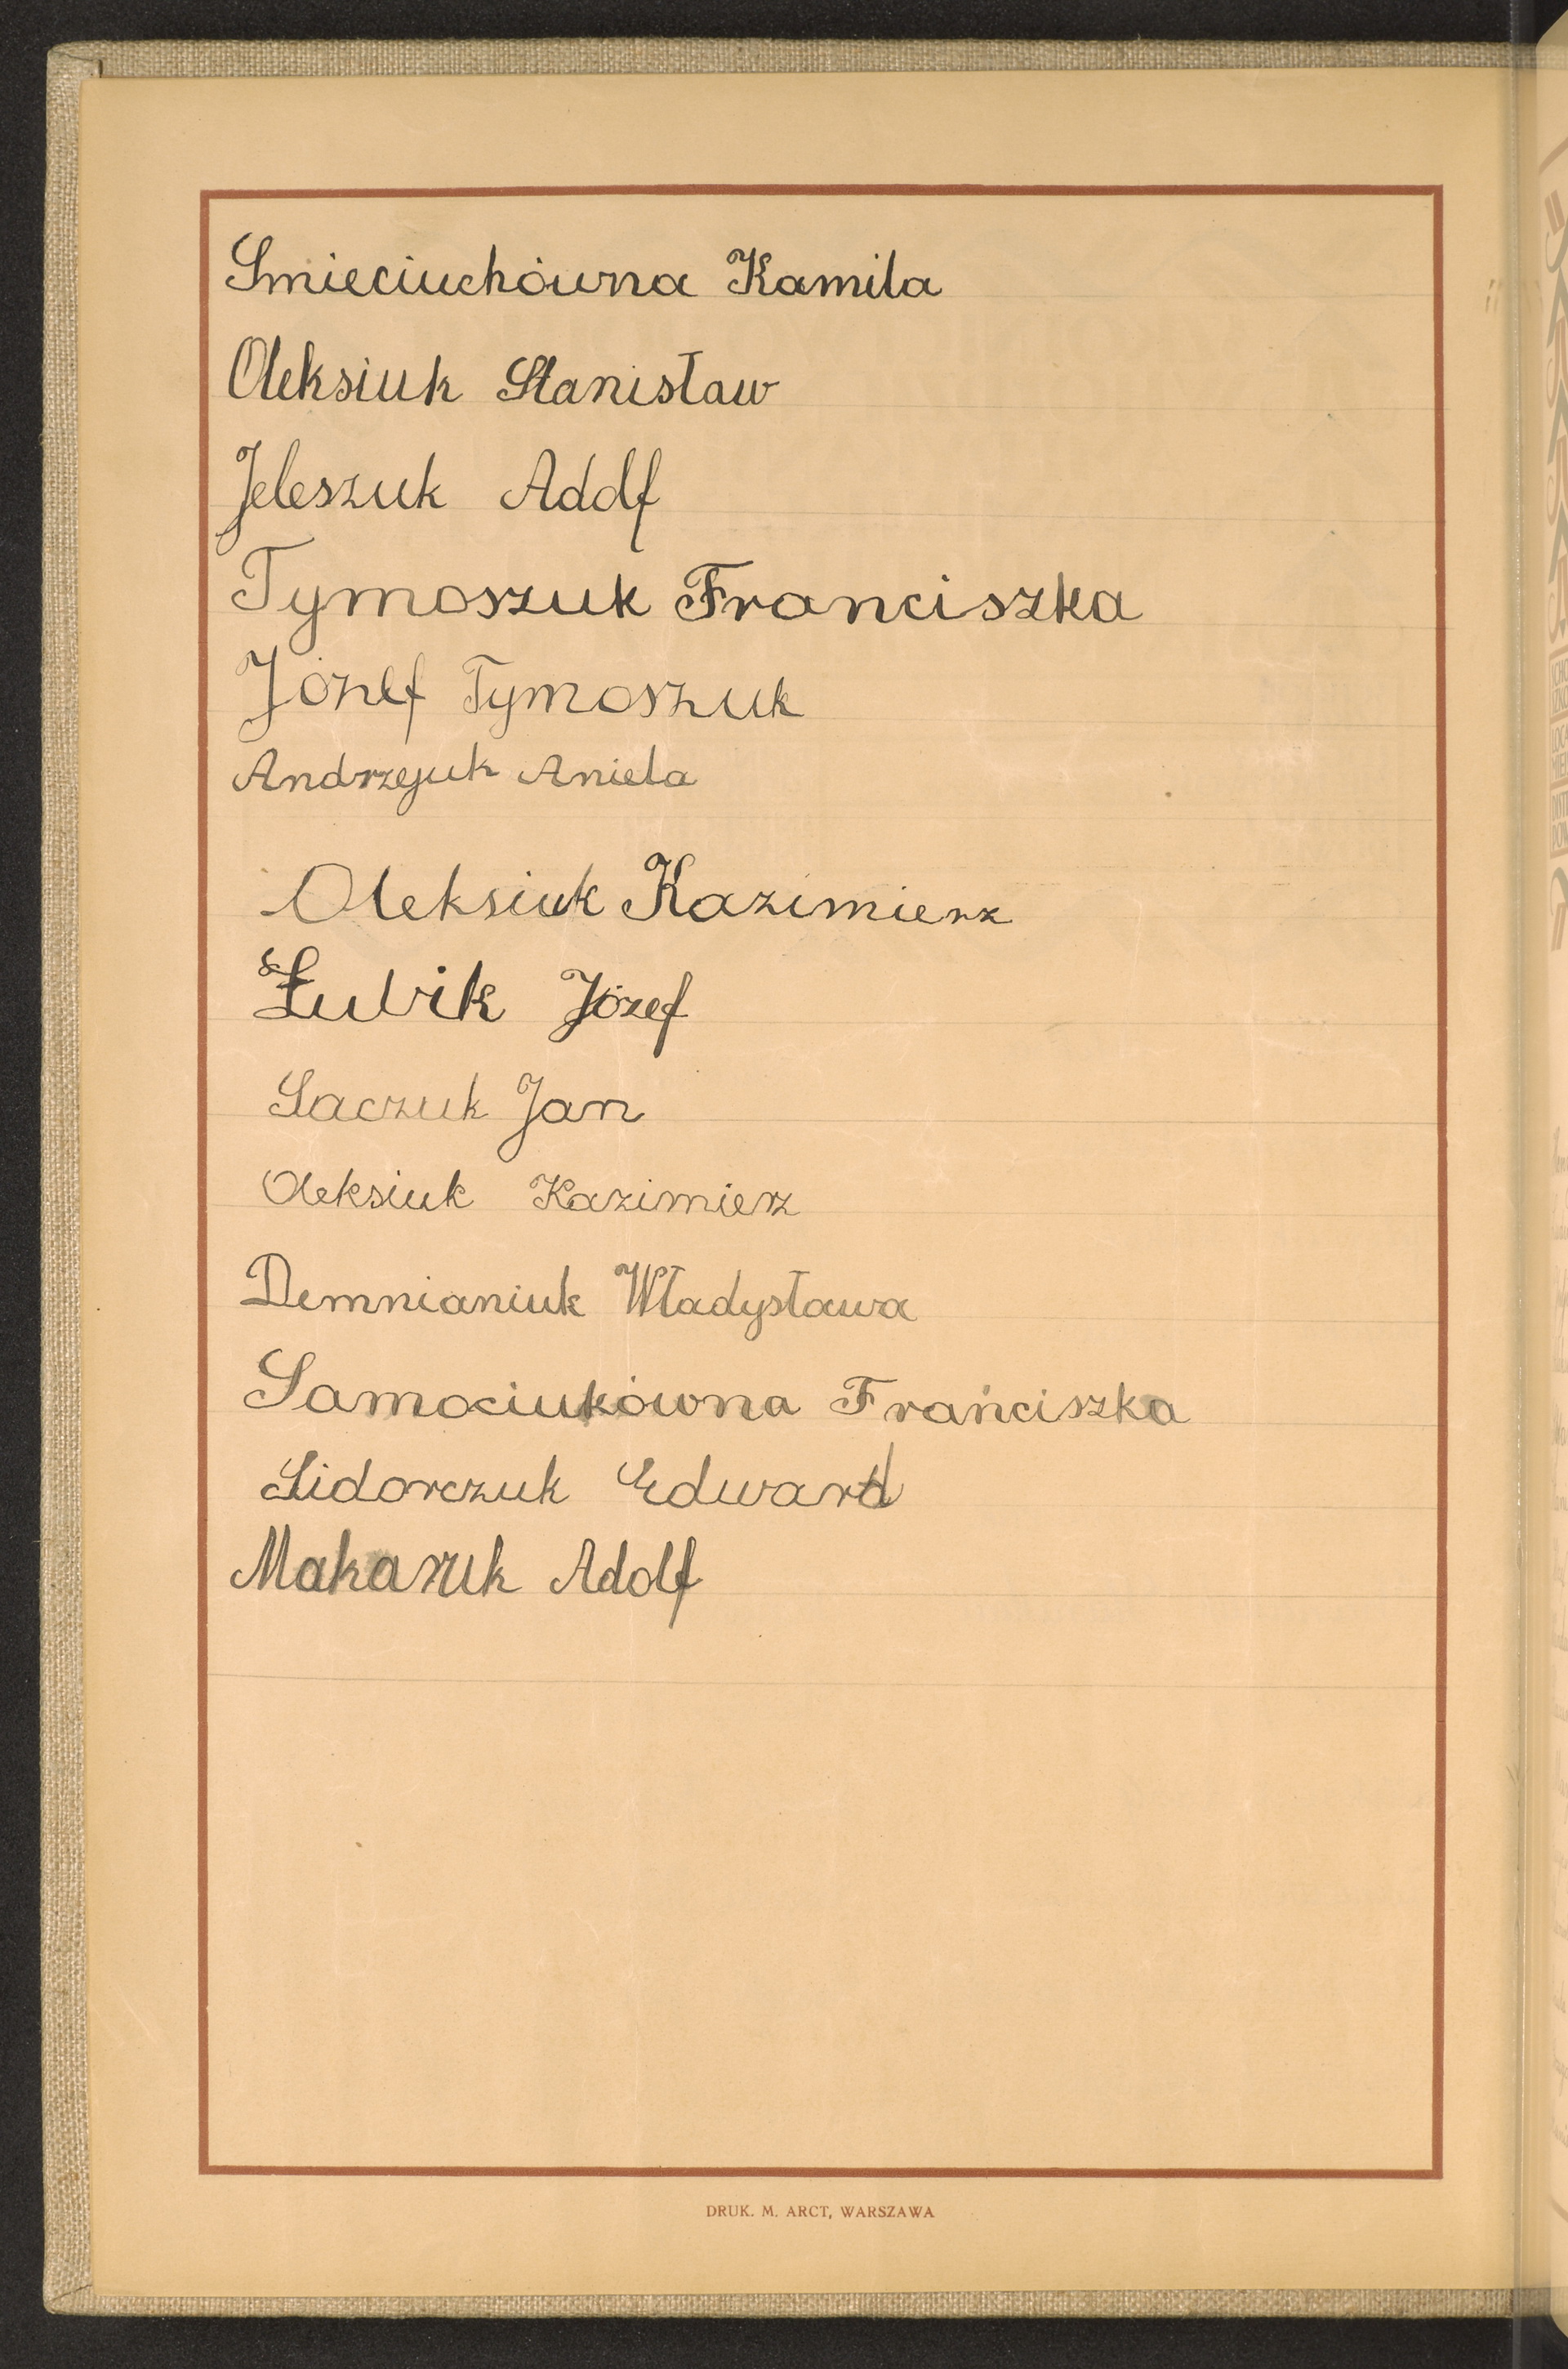 Smieciuchówna Kamila
Oleksiuk Stanisław
Jeleszuk Adolf
Tymoszuk Franciszka
Józef Tymoszuk
Andrzejuk Aniela
Oleksiuk Kazimierz
Józef
Saczuk Jan
Oleksiuk Kazimierz
Demnianiuk Władysława
Samociukówna Frańciszka
Sidorczuk Edward
Adolf
DRUK. M. ARCT, WARSZAWA